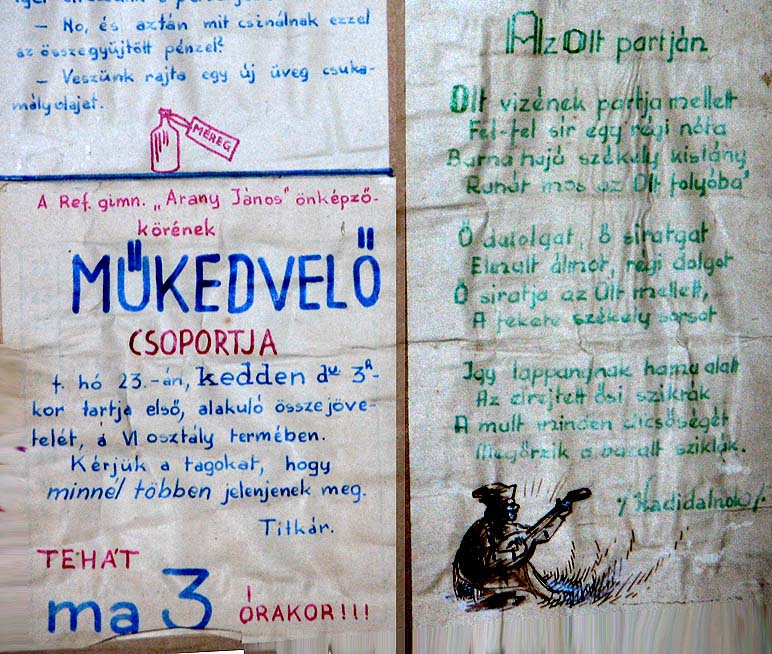 — No, és aztán mit csinálnak ezzel
az összegyüjtött pénzel?
— Veszünk rajta egy új üveg csuka-
májolajat.
MÉREG
A Ref. gimn. „Arany János" önképző-
körének
MŰKEDVELŐ
CSOPORTJA
f. hó 23.-án, kedden du 3h-
kor tartja első, alakuló összejöve-
telét, a VI osztály termében.
Kérjük a tagokat, hogy
minnél többen jelenjenek meg.
Titkár.
TEHÁT
ma 3 ÓRAKOR!!!
Az Olt partján
Olt vizének partja mellett
Fel-fel sír egy régi nóta
Barna hajú székely kislány
Ruhát mos az Olt folyóba'
Ő dalolgat, ő siratgat
Elmult álmot, régi dolgot
Ő siratja az Olt mellett,
A fekete székely sorsot
Igy lappangnak hamu alatt
Az elrejtett ősi szikrák
A mult minden dicsőségét
Megőrzik a bazalt sziklák.
/Hadidalnok/.